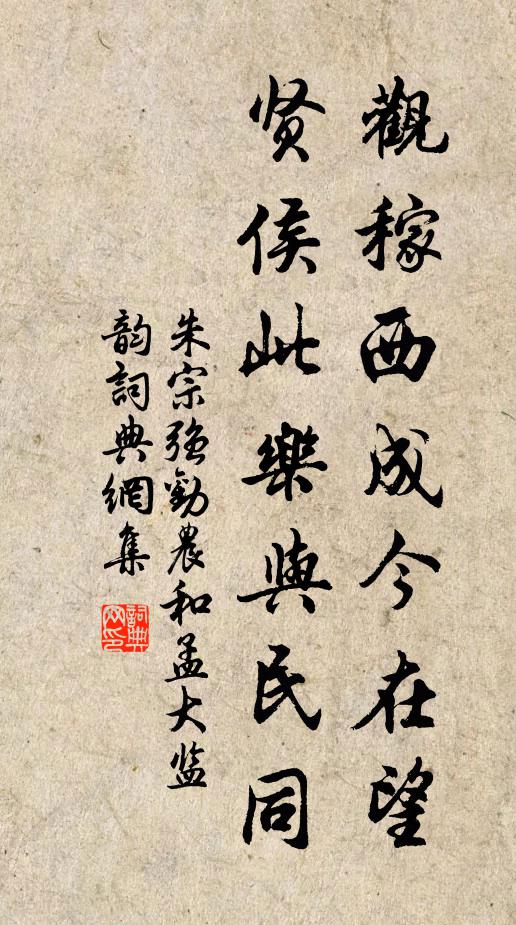 觀稼西成今在望
贤侯此樂與民同
朱宗强勸農和孟大监
韵詞典網集
詞典网印